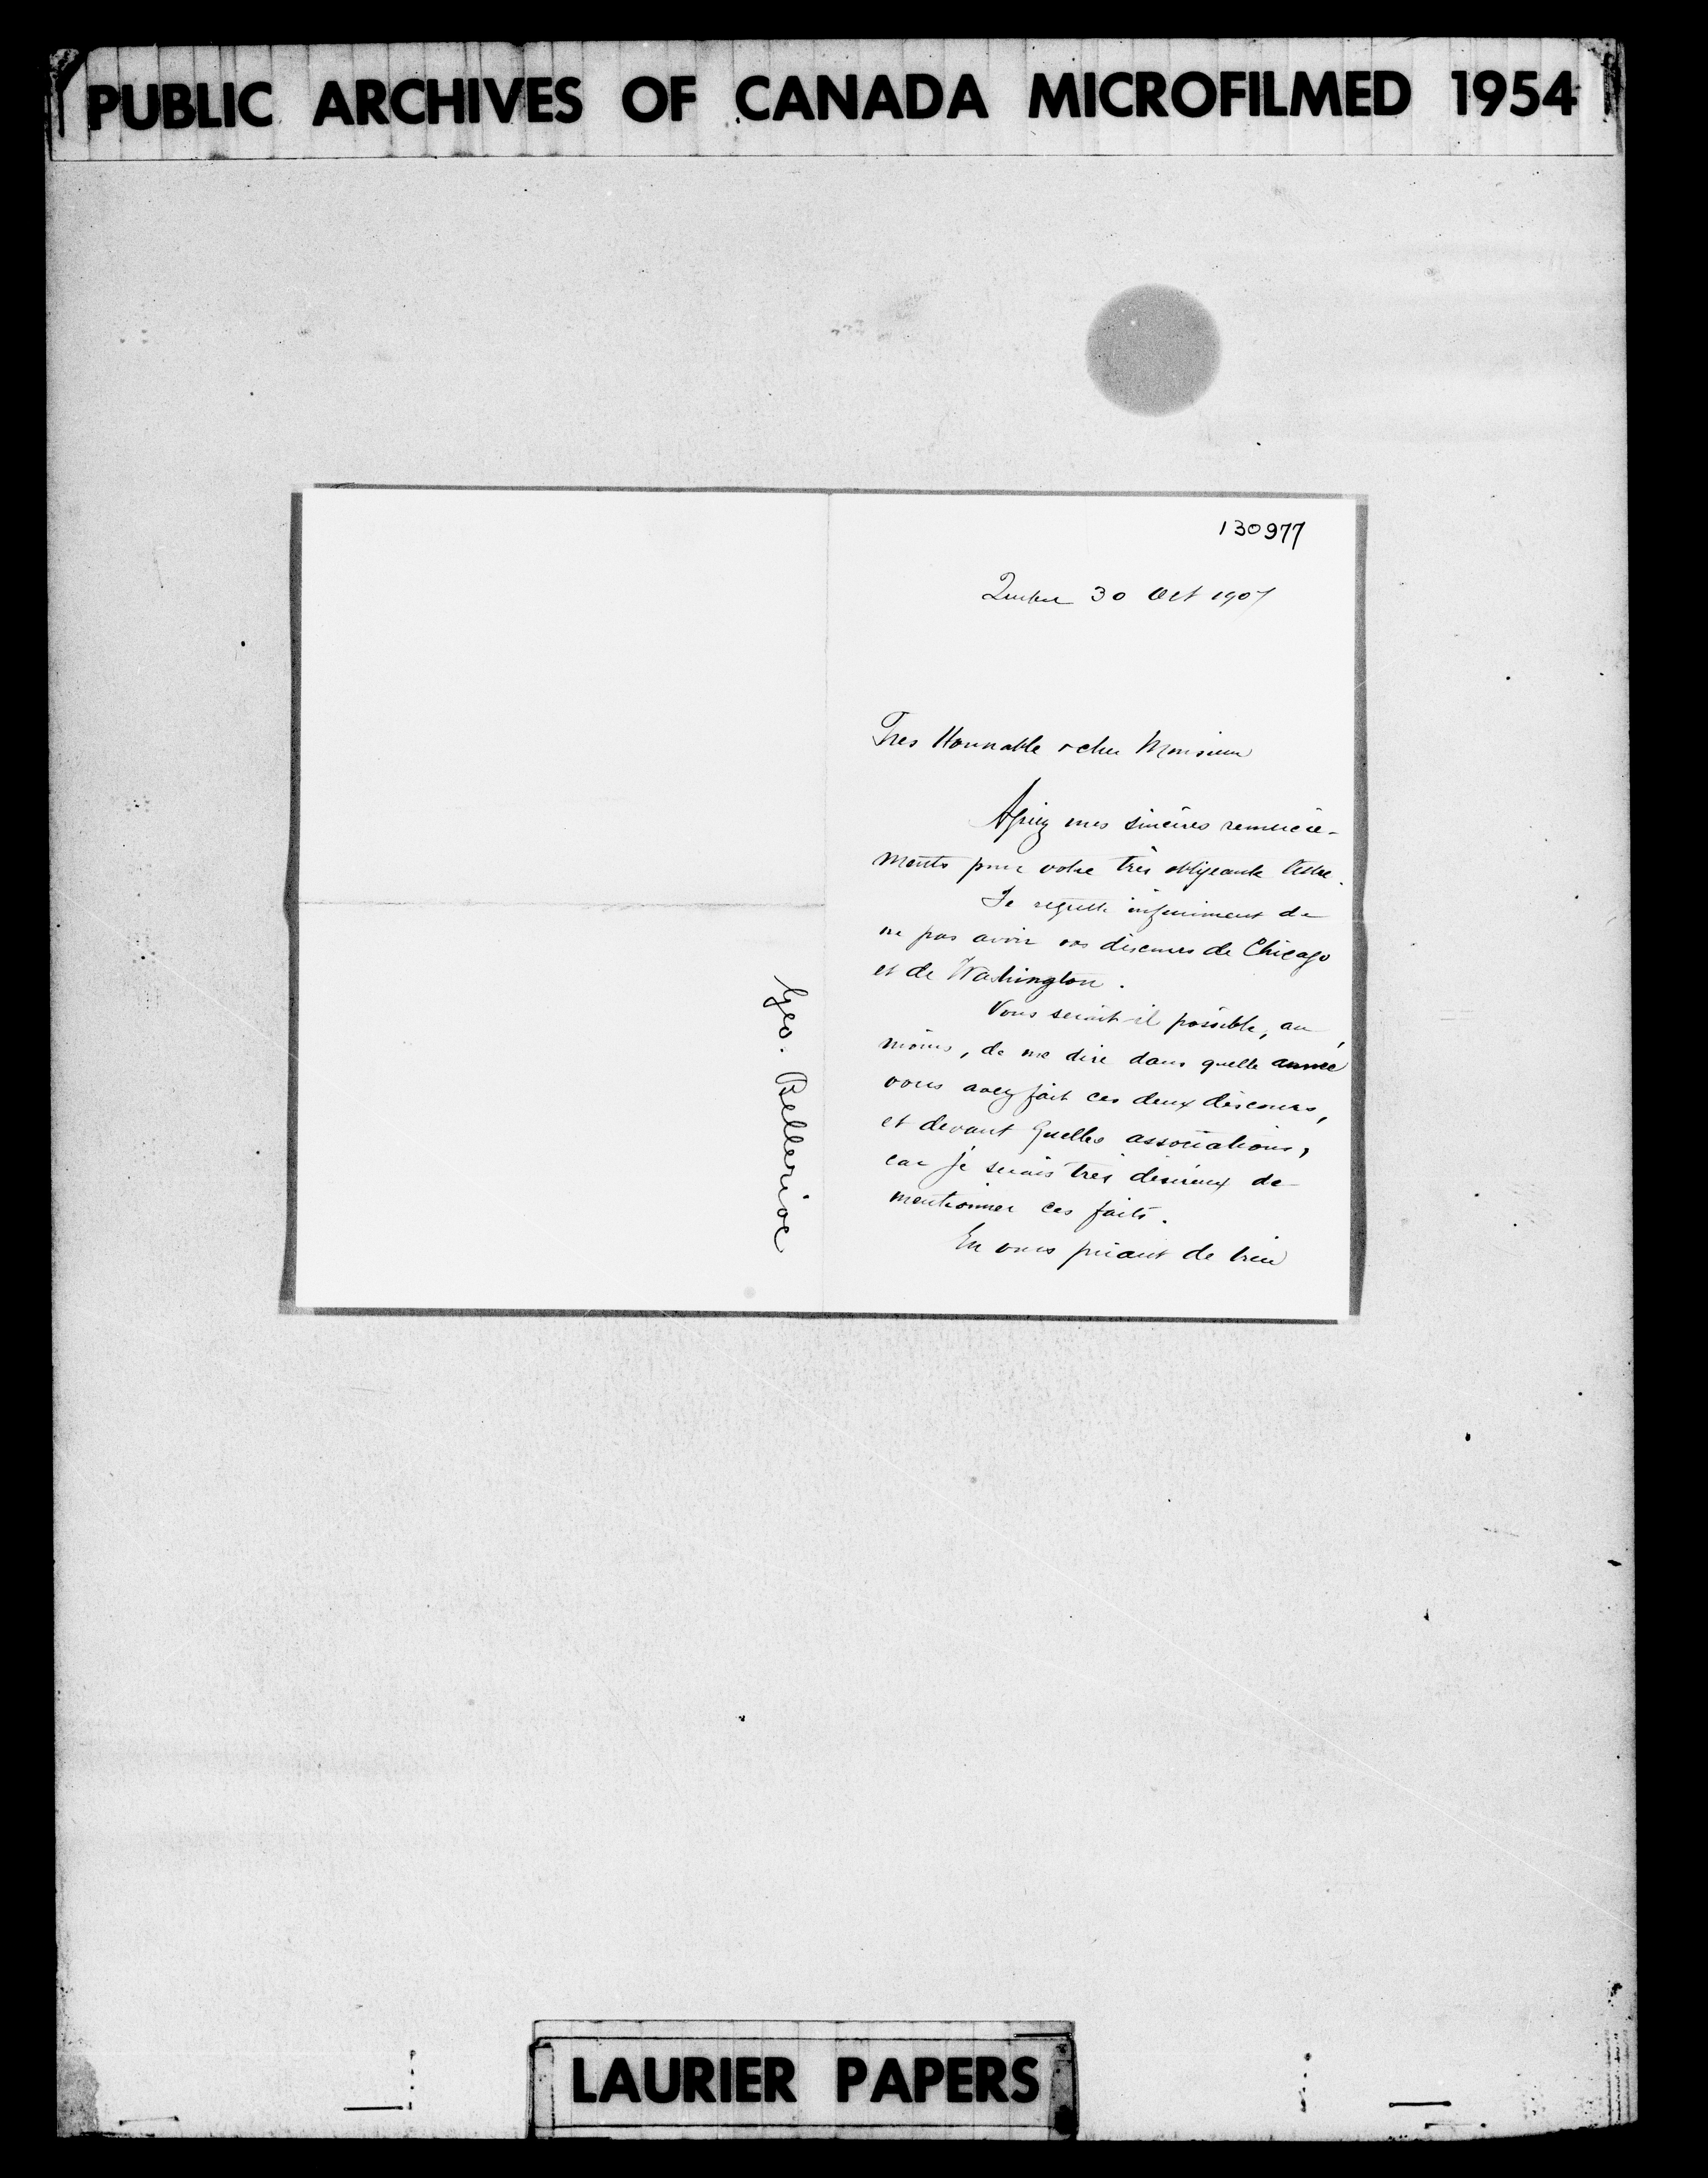 PUBLIC ARCHIVES OF CANADA MICROFILMED 1954
130977
Quebec 30 Oct 1907
Tres Honorable & cher Monsieur
Agréez mes sincères remercie-
ments pour votre très obligeante lettre.
Je regrette infiniment de
ne pas avoir vos discours de Chicago
et de Washington.
Vous serait-il possible, au
moins, de me dire dans quelle année
vous avez fait ces deux discours,
et devant quelles associations,
car je serais très désireux de
mentionner ces faits.
En vous priant de bien
Geo. Bellerive
LAURIER PAPERS